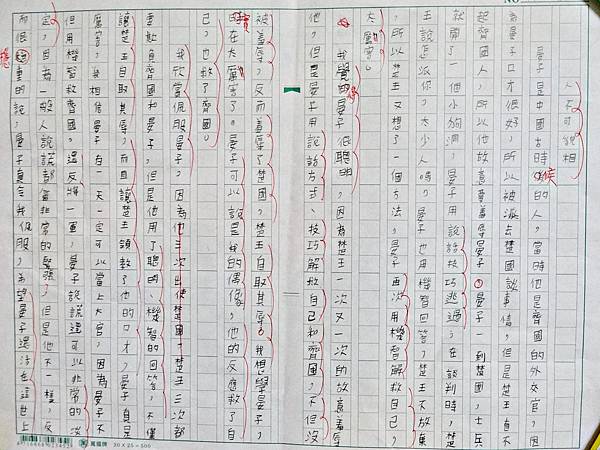 人不可貌相
晏子是中國古時候的人,當時他是齊國的外交官,因
為晏子口才很好,所以被派去楚國談事情,但是楚王看不
起齊國人,所以他故意羞辱晏子。晏子一到楚國,士兵
就開一個小狗洞,晏子用說話技巧逃過,在談判時,楚
王說怎了派你一大少人嗎?晏子也用機智回答,楚王不放棄
,所以楚王又想了一個方法,晏子再次用機智解救自己,
太厲害。
我覺的晏子很聰明,因為楚王一次又一次的故意羞辱
他,但是晏子用說話方式、技巧解救自己和齊國,不但沒
被羞辱,反而羞辱了楚國,楚王自取其辱。我想學晏子,
實在太厲害了。晏子可以說是我的偶像,他的反應救了自
己,也救了齊國。
我欣賞佩服晏子,因為他三次出使楚國,楚王三次都
重欺負齊國和晏子,但是他用了聰明、機智的回答,不僅
讓楚王自取其辱,而且讓楚王領教了他的口才,晏子真是
厲害,我相信晏子有一天一定可以當上大官,因為晏子不
但用機智救齊國,還反將一軍,晏子說謊還可以非常的淡
定,因為一般人說謊都會非常的緊張,但是他不一樣,反
而很穩重的說,晏子真令我佩服,希望晏子還活在這世上
萬國牌 30×25=500